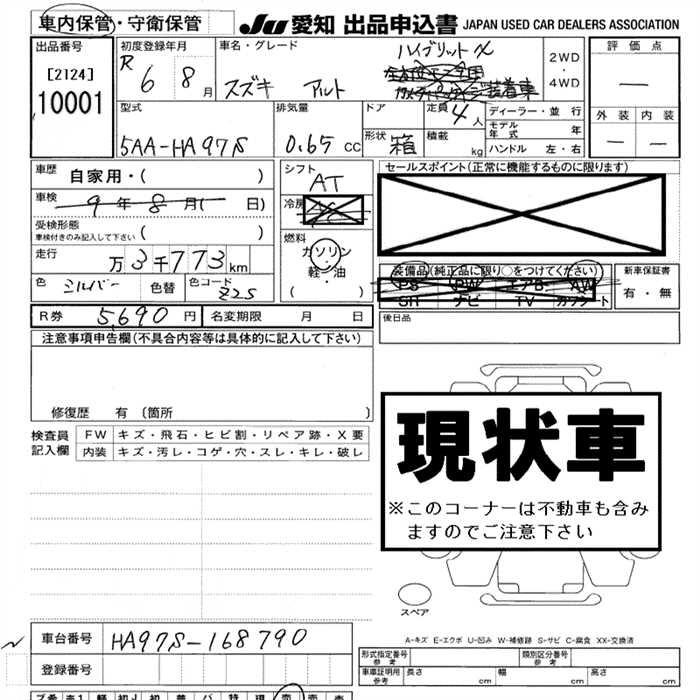 車内保管・守衛保管
JU 愛知 出品申込書 JAPAN USED CAR DEALERS ASSOCIATION
出品番号
[2124]
10001
初度登録年月
R 6 8 月
車名・グレード
ハイブリットX
スズキ アルト
装着車
2WD
・
4WD
評価点
—
外装 内装
— —
型式
5AA-HA97S
排気量
0.65 CC
ドア
形状 箱
定員 4人
積載 kg
ディーラー・並行
モデル年式 年
ハンドル 左・右
車歴
自家用・( )
車検
9年8月( 日)
受検形態
車検付きのみ記入して下さい ( )
走行
万3千773km
色 シルバー 色替 色コード Z2S
シフト
AT
冷房
燃料
ガソリン
・
軽・油
( )
セールスポイント(正常に機能するものに限ります)
装備品(純正品に限り○をつけてください)
PS PW エアB AW
SR ナビ TV カワシート
新車保証書
有・無
R券 5,690 円 名変期限 月 日
後日品
注意事項申告欄(不具合内容等は具体的に記入して下さい)
修復歴 有 〔箇所 〕
検査員記入欄
FW キズ・飛石・ヒビ割・リペア跡・X要
内装 キズ・汚レ・コゲ・穴・スレ・キレ・破レ
現状車
※このコーナーは不動車も含み
ますのでご注意下さい
スペア
A-キズ E-エクボ U-凹み W-補修跡 S-サビ C-腐食 XX-交換済
車台番号 HA97S-168790
登録番号
形式指定番号 参考
類別区分番号 参考
車庫証明用 参考 長さ cm 幅 cm 高さ cm